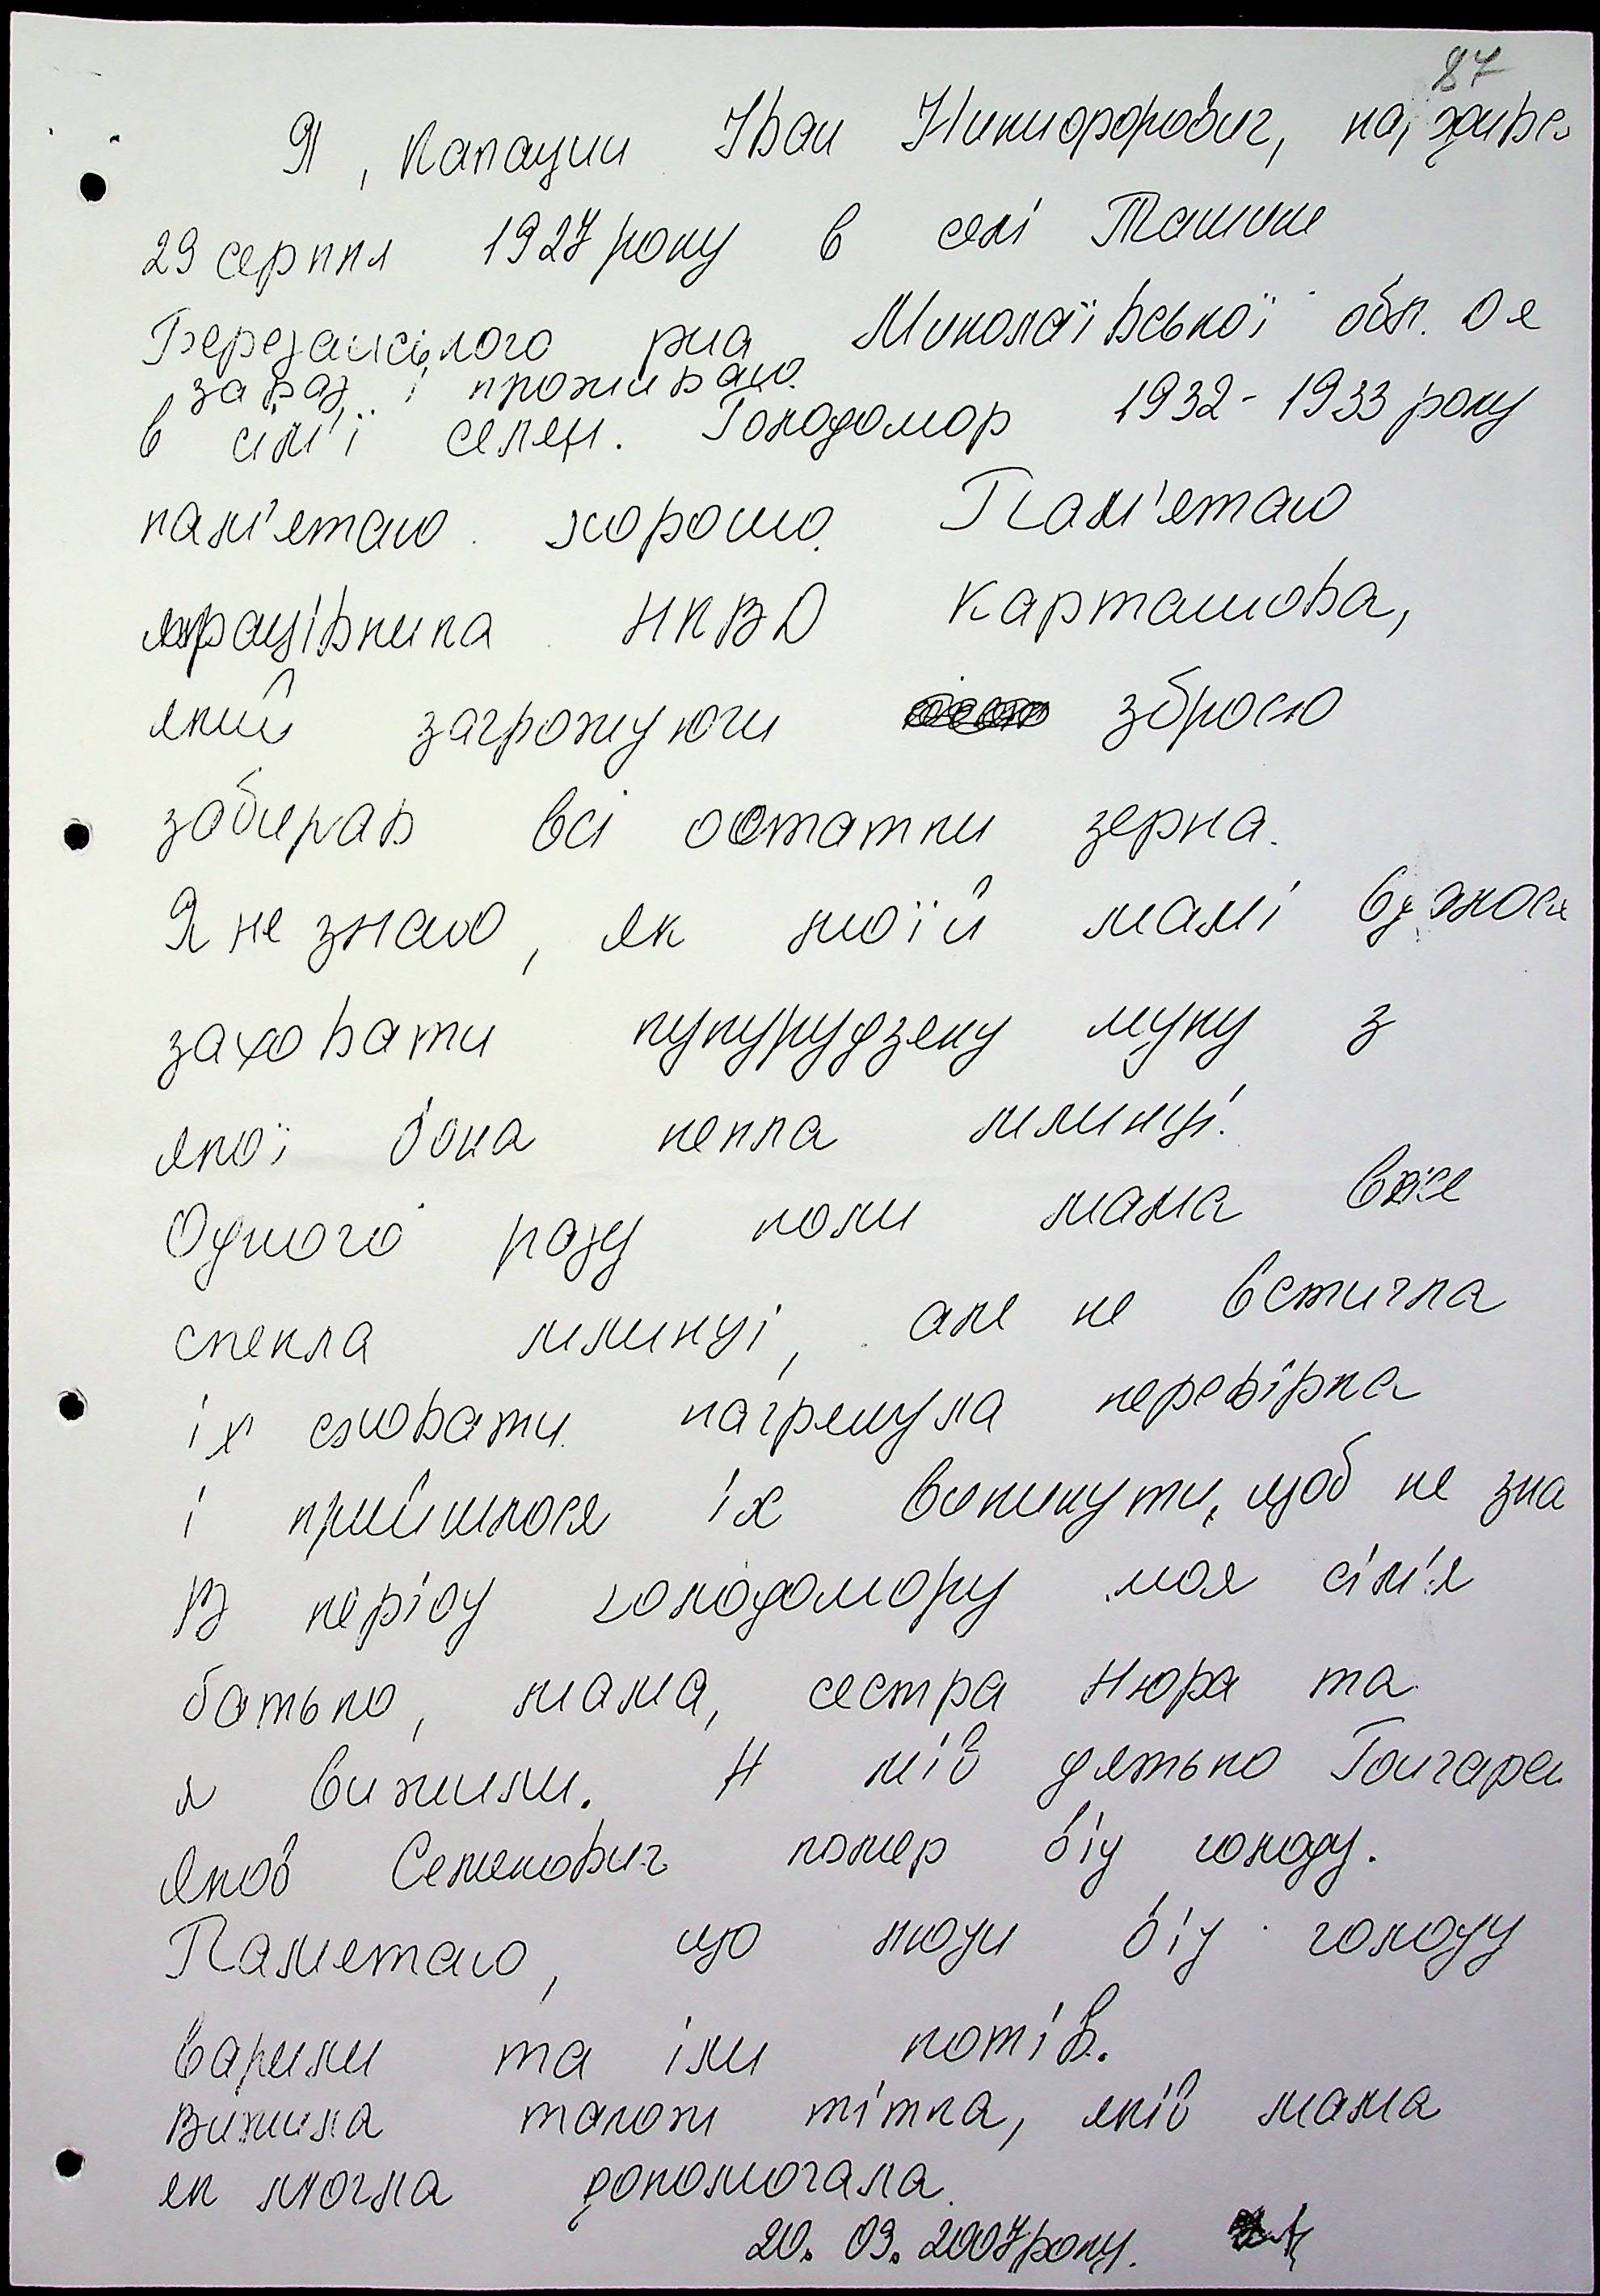 87
Я, Капацин Іван Никифорович, на
29 серпня 1927 року в селі Ташине
Березанського р-на Миколаївської обл. Де
зараз і проживаю.
в сім'ї селян. Голодомор 1932-1933 року
пам'ятаю хорошо. Пам'ятаю
працівника НКВД Карташова,
який загрожуючи зброєю
забирав всі остатки зерна.
Я не знаю, як моїй мамі
заховати кукурудзяну муку з
якої вона пекла млинці.
Одного разу коли мама вже
спекла млинці, але не встигла
їх сховати нагрянула перевірка
і прийшлося їх викинути, щоб не зна
В періоу голодомору моя сім'я
батько, мама, сестра Нюра та
я вижили. А мій дятько Гончарен
Яков Семенович помер від голоду.
Памятаю, що люди від голоду
варили та їли котів.
Вижила також тітка, якій мама
як могла допомогала.
20. 09. 2007 року.